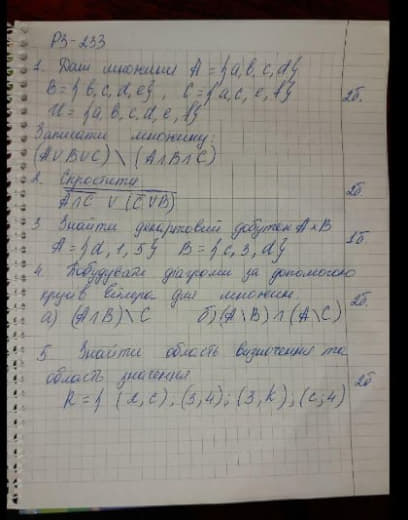 РЗ-233
1. Дані множини A = {a, b, c, d}
B = {b, c, d, e}, C = {a, c, e, f} 2б.
U = {a, b, c, d, e, f}
Записати множину:
(A∪B∪C) \ (A∩B∩C)
2. Спростити 2б.
A∩C ∪ (C∪B)
3 Знайти декартовий добуток A×B 1б.
A = {d, 1, 5} B = {c, 3, d}
4. Побудувати діаграми за допомогою
кругів Ейлера для множин 2б.
а) (A∩B)\C б) (A\B) ∩ (A\C)
5 Знайти область визначення та
область значення 2б
R = { (2, c), (3, 4); (3, k), (c; 4)